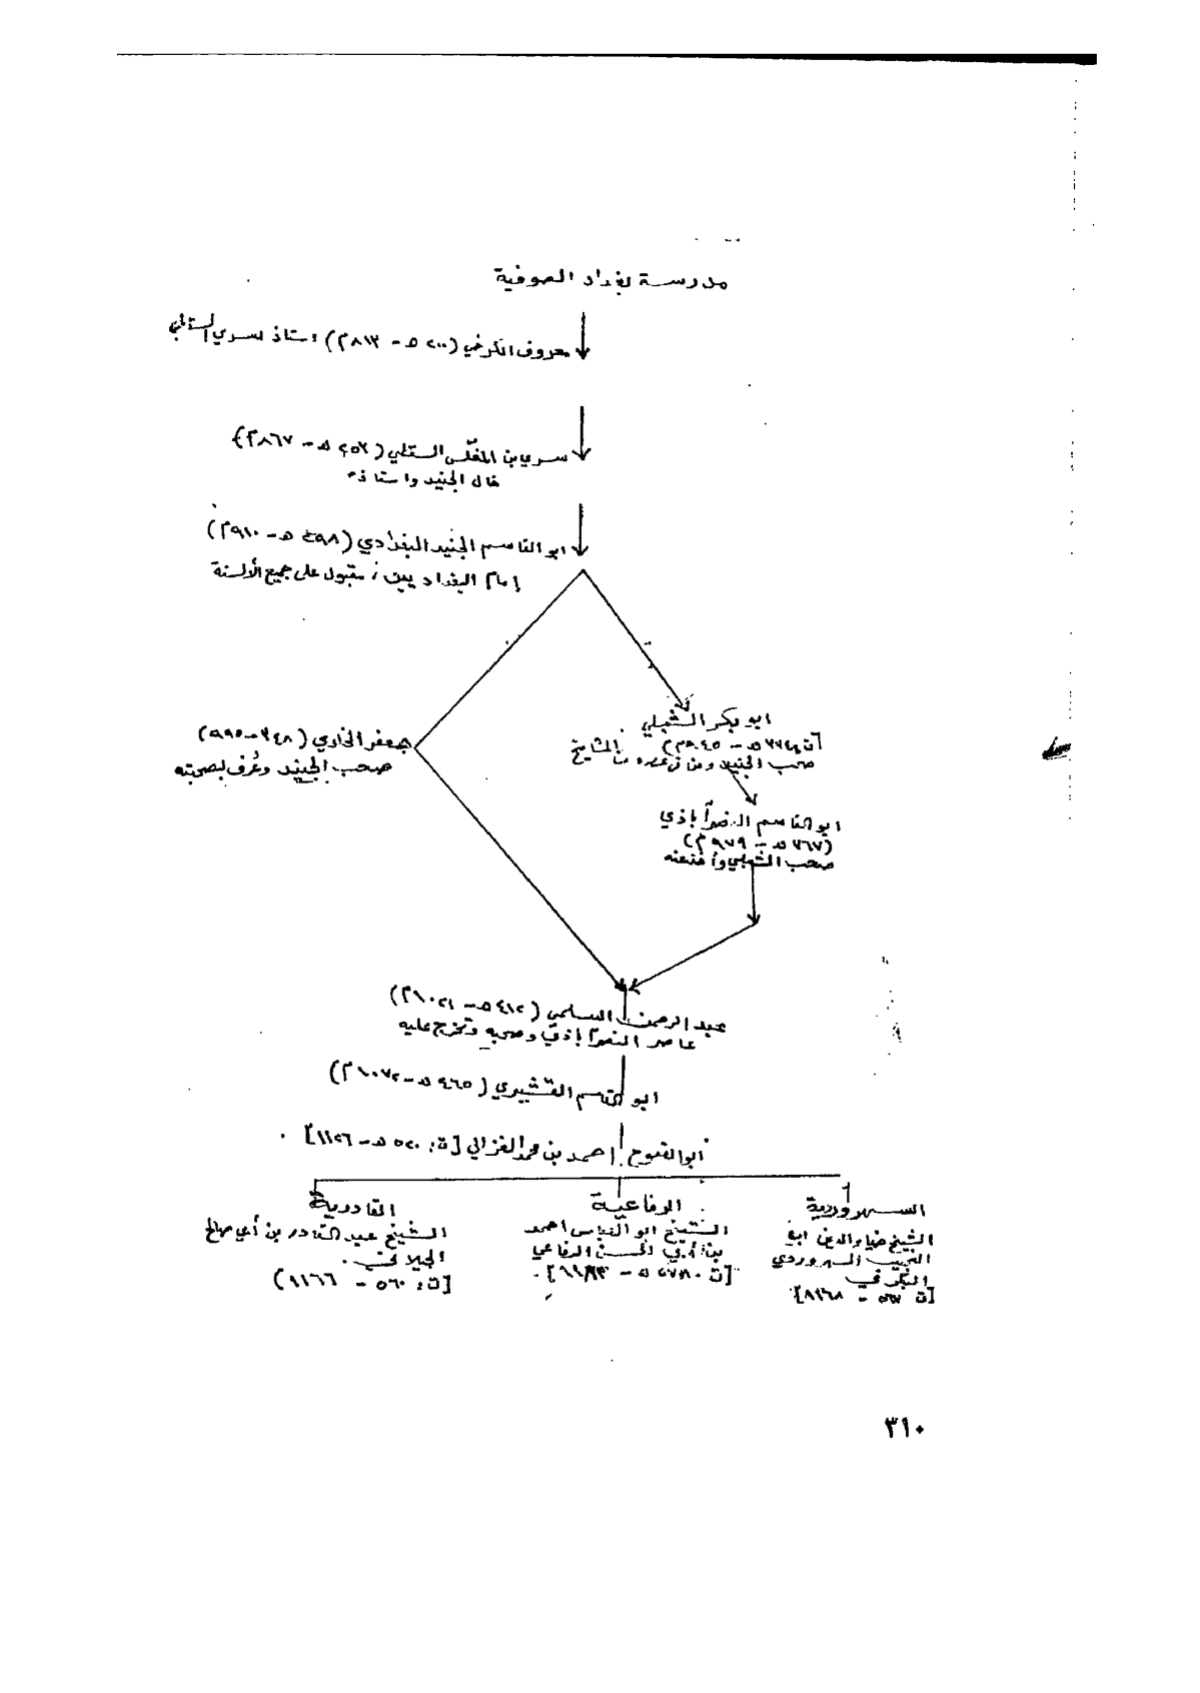 مدرسة بغداد الصوفية
معروف الكرخي (٢٠٠ هـ - ٨١٣م) استاذ لسري السقطي
سري بن المغلّس السقطي (٢٥٣ هـ - ٨٦٧م)
خال الجنيد واستاذه
ابو القاسم الجنيد البغدادي (٢٩٨ هـ - ٩١٠م)
إمام البغداديين، مقبول على جميع الألسنة
ابو بكر الشبلي
صحب الجنيد ومن في عصره من المشايخ
جعفر الخلدي (٣٤٨ -
صحب الجنيد وعُرف بصحبته
ابو القاسم النصرآباذي
(٣٦٧ هـ - ٩٧٩م)
صحب الشبلي وأخذ عنه
عبد الرحمن السلمي (٤١٢ هـ - ١٠٢١م)
عاصر النصرآباذي وصحبه وتخرج عليه
ابو القاسم القشيري (٤٦٥ هـ - ١٠٧٢م)
أبو الفتوح احمد بن محمد الغزالي [ت: ٥٢٠ هـ - ١١٢٦] .
السهروردية
الشيخ ضياء الدين ابو
النجيب السهروردي
البكر في
[ت ٥٦٣ - ١١٦٨]
الرفاعية
الشيخ ابو العباس احمد
بن أبي الحسن الرفاعي
[ت ٥٧٨ هـ -
القادرية
الشيخ عبد القادر بن أبي صالح
الجيلاني .
[ت: ٥٦٠ - ١١٦٦)
٣١٠